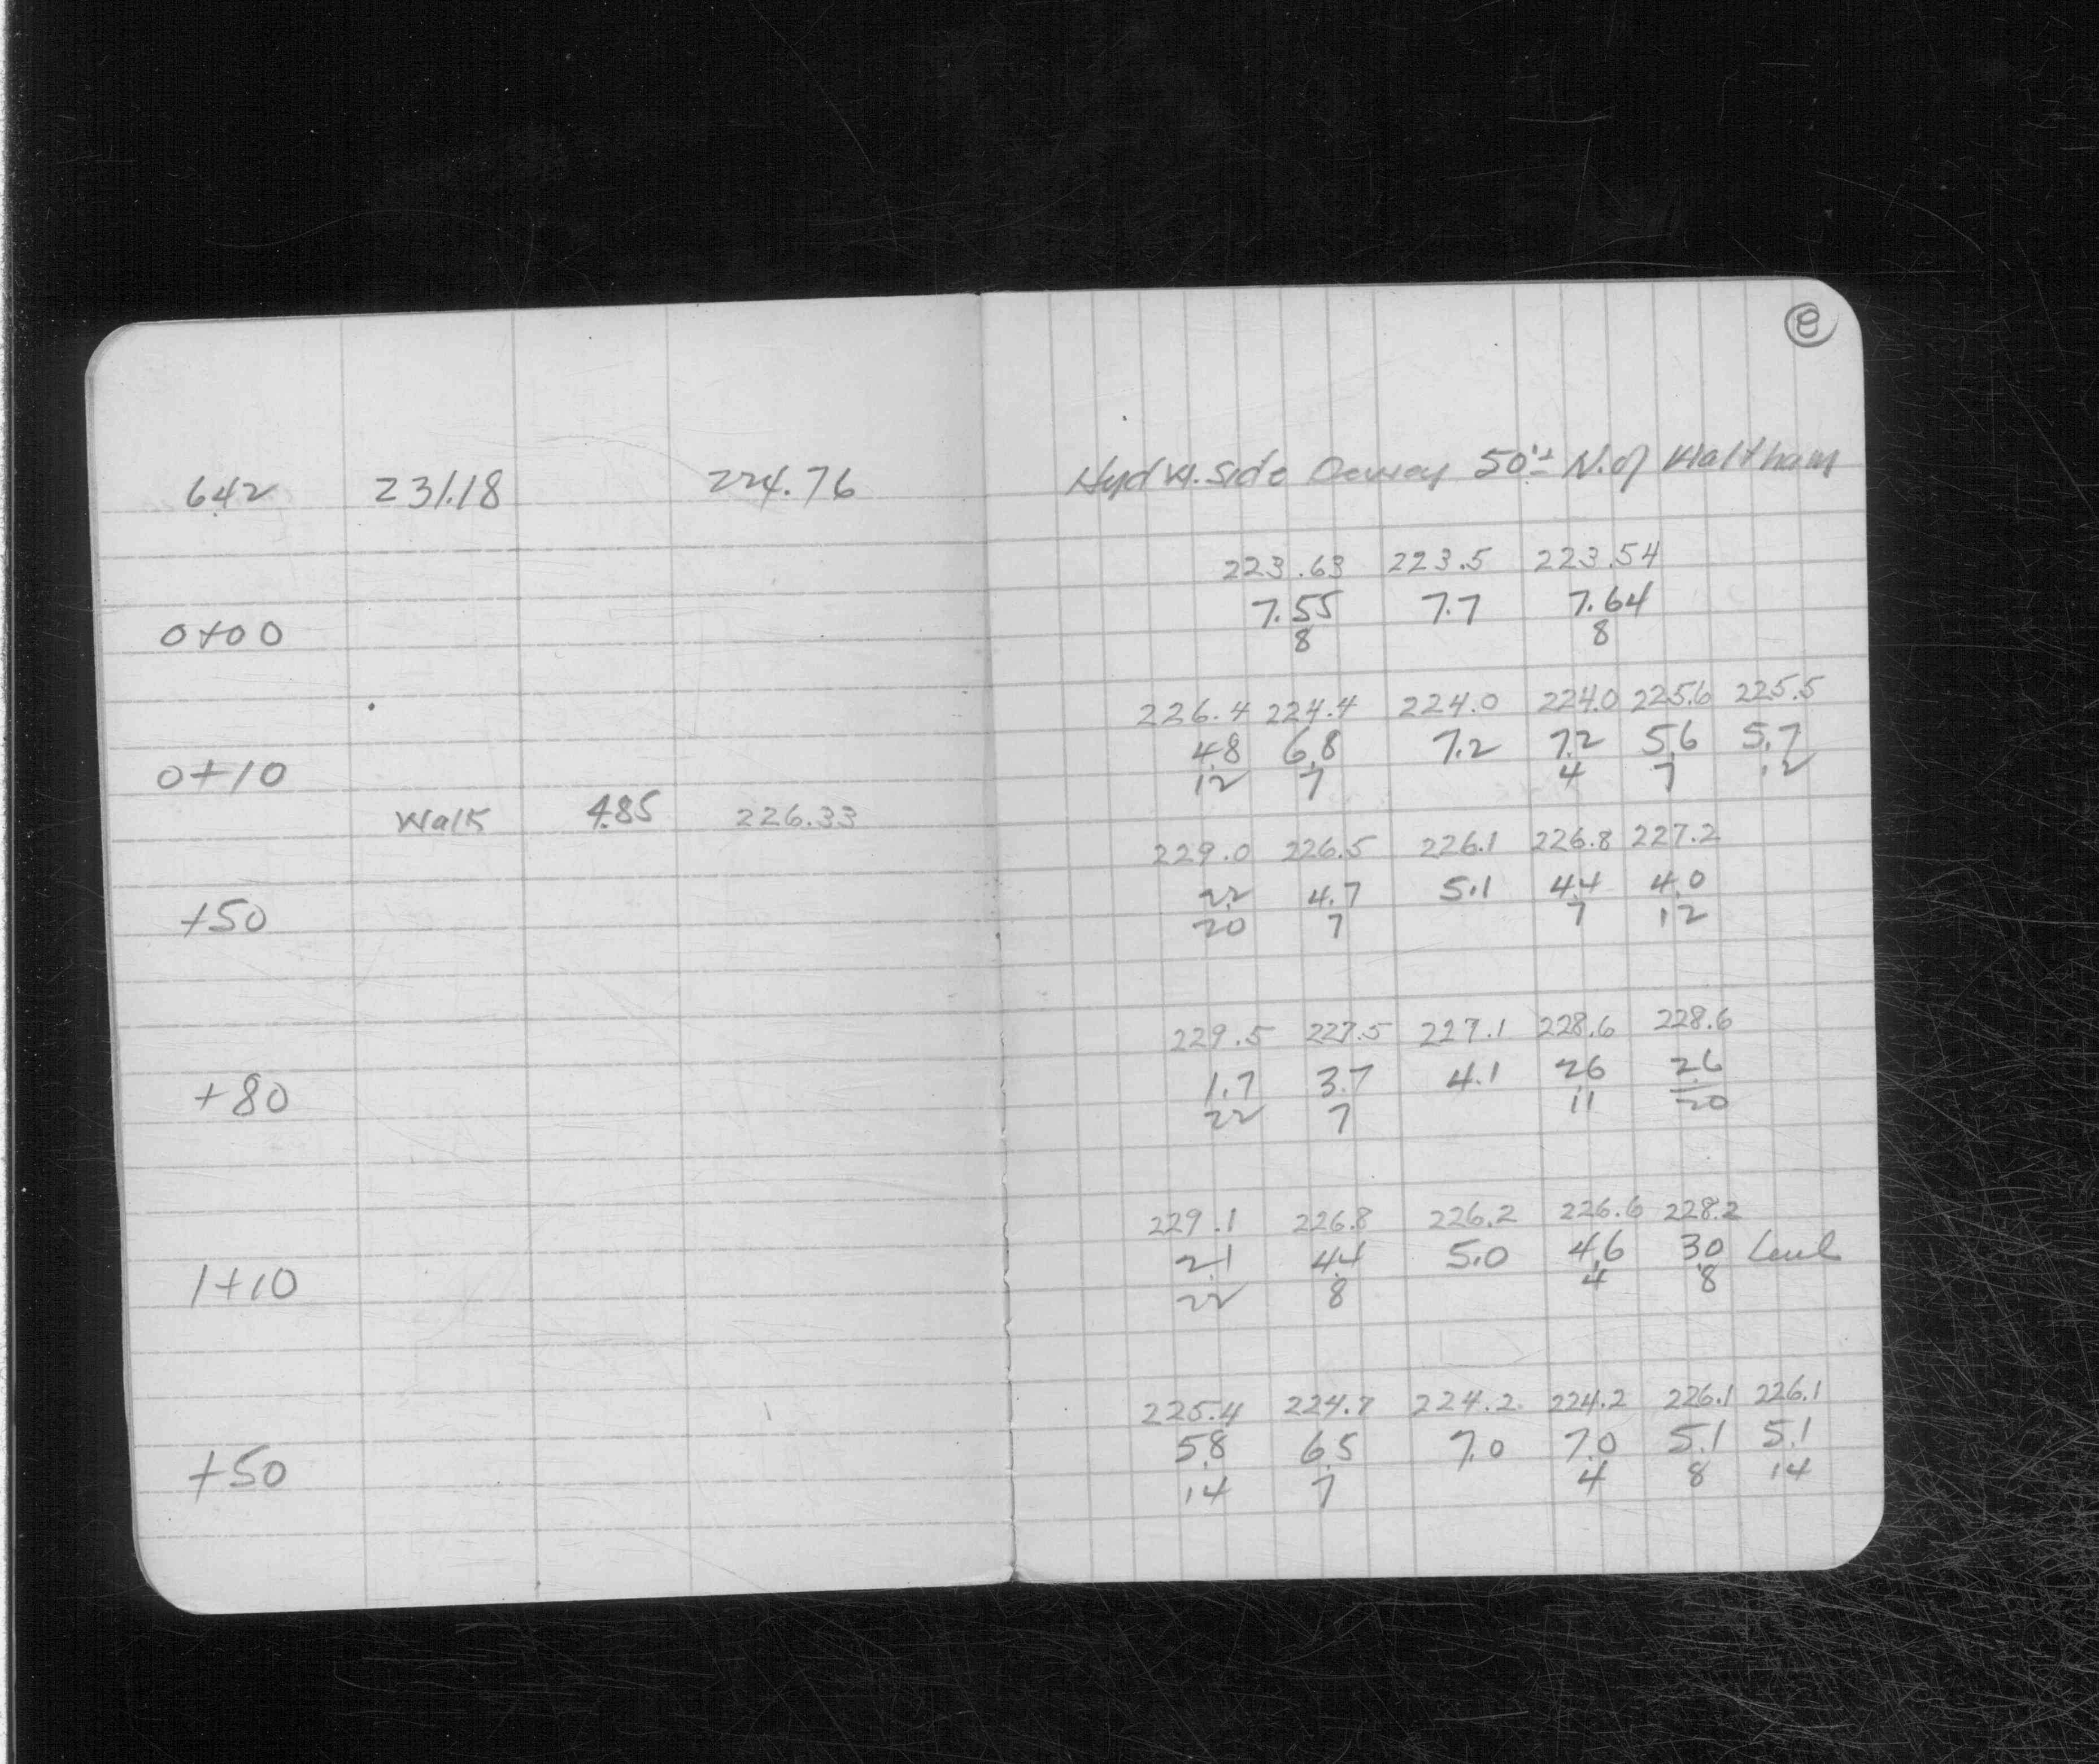 6.42 231.18 224.76 Hyd W. side Dewey 50'± N. of Waltham
223.63 223.5 223.54
0+00 7.55 7.7 7.64
8 8
226.4 224.4 224.0 224.0 225.6 225.5
0+10 4.8 6.8 7.2 7.2 5.6 5.7
12 7 4 7 12
Walk 4.85 226.33
229.0 226.5 226.1 226.8 227.2
+50 2.2 4.7 5.1 4.4 4.0
20 7 7 12
229.5 227.5 227.1 228.6 228.6
+80 1.7 3.7 4.1 2.6 2.6
22 7 11 20
229.1 226.8 226.2 226.6 228.2
1+10 2.1 4.4 5.0 4.6 3.0 Level
22 8 4 8
225.4 224.7 224.2 224.2 226.1 226.1
+50 5.8 6.5 7.0 7.0 5.1 5.1
14 7 4 8 14